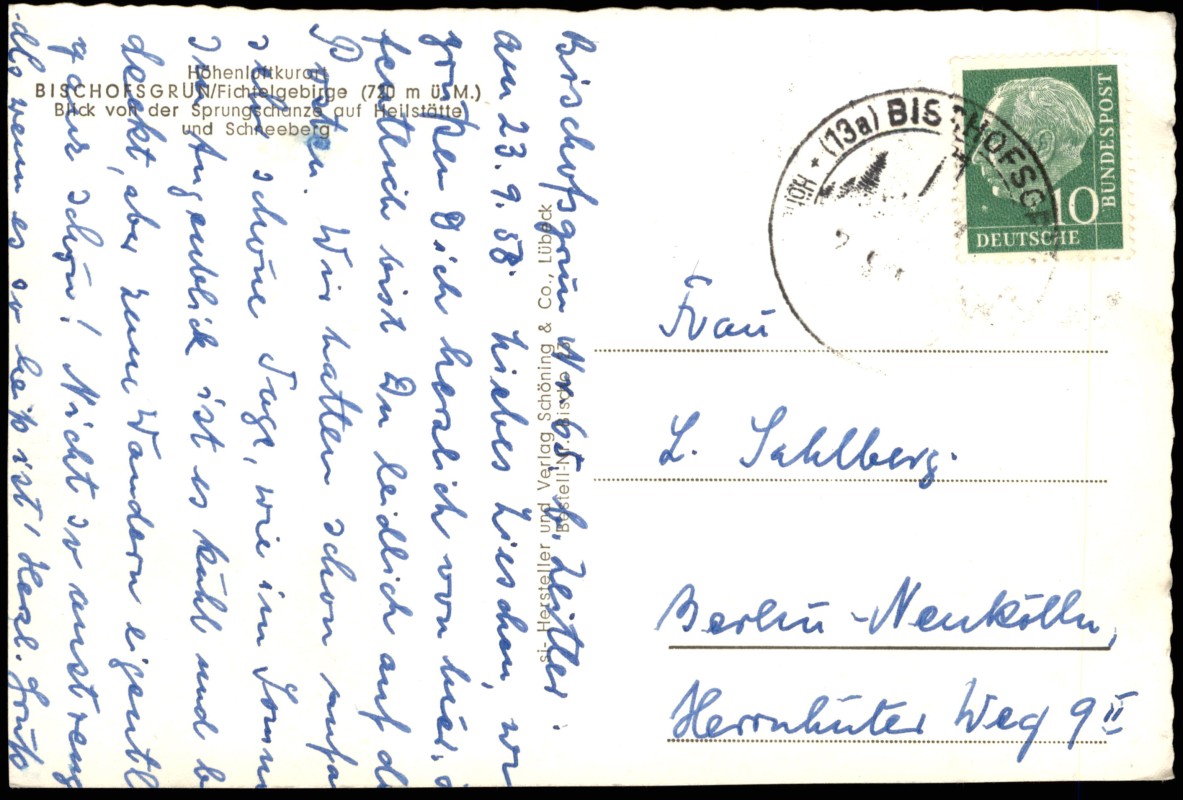 Höhenluftkurort
BISCHOFSGRÜN/Fichtelgebirge (720 m ü. M.)
Blick von der Sprungschanze auf Heilstätte
und Schneeberg
Bischofsgrün Nr. 65 b. Zeitler.
am 23. 9. 58. Liebes Lieschen, wir
grüßen Dich herzlich von hier,
fentlich bist Du leidlich auf de
Posten. Wir hatten schon
sehr schöne Tage, wie im Somm
Im Augenblick ist es kühl und b
deckt, aber zum Wandern eigentl
ganz schön! Nicht so anstreng
wenn es so heiß ist! Herzl. Grüße
si- Hersteller und Verlag Schöning & Co., Lübeck
Bestell-Nr. Bischo
(13a) BISCHOFSGR
HÖH
DEUTSCHE
BUNDESPOST
10
Frau
L. Sahlberg.
Berlin-Neukölln,
Herrnhuter Weg 9 II